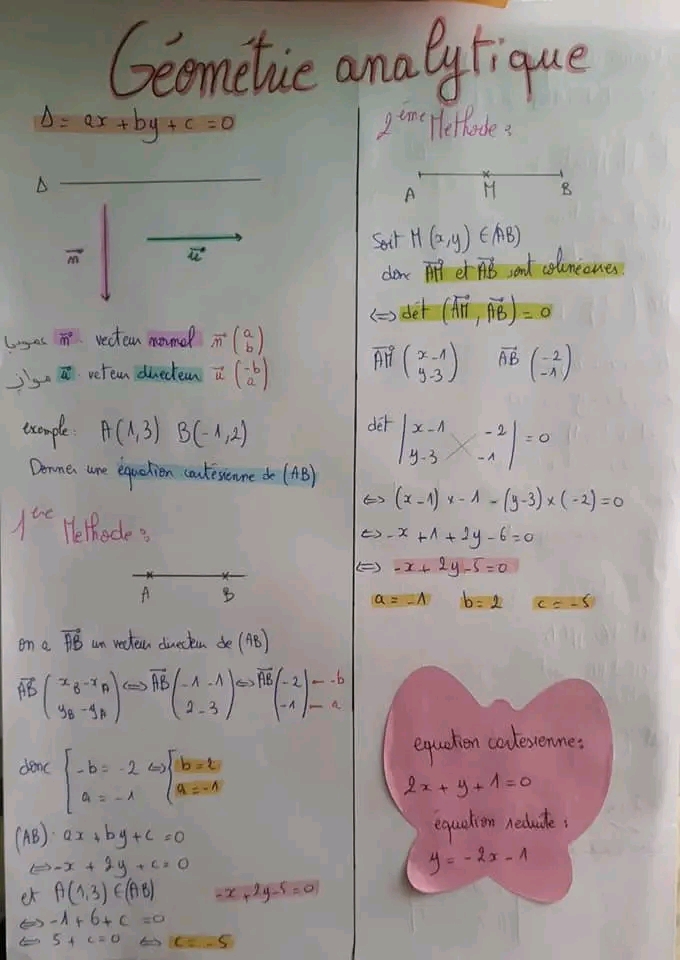 Géométrie analytique
Δ = ax + by + c = 0
Δ
n⃗
u⃗
n⃗ . vecteur normal n⃗ (a b)
موازي u⃗ . veteur directeur u⃗ (-b a)
exemple: A(1,3) B(-1,2)
Donner une équation cartésienne de (AB)
1ère Methode:
A B
on a AB⃗ un vecteur directeur de (AB)
AB⃗ (xB - xA yB - yA) ⇔ AB⃗ (-1 -1 2 - 3) ⇔ AB⃗ (-2 -1) ← -b ← a
donc { -b = -2 ⇔ { b = 2
a = -1 a = -1
(AB): ax + by + c = 0
⇔ -x + 2y + c = 0
et A(1,3) ∈ (AB) -x + 2y - 5 = 0
⇔ -1 + 6 + c = 0
⇔ 5 + c = 0 ⇔ c = -5
2ème Methode:
A M B
Soit M (x,y) ∈ (AB)
donc AM⃗ et AB⃗ sont colinéaires.
⇔ dét (AM⃗, AB⃗) = 0
AM⃗ (x-1 y-3) AB⃗ (-2 -1)
dét | x-1 -2 | = 0
y-3 -1
⇔ (x-1) × -1 - (y-3) × (-2) = 0
⇔ -x + 1 + 2y - 6 = 0
⇔ -x + 2y - 5 = 0
a = -1 b = 2 c = -5
equation cartesienne:
2x + y + 1 = 0
équation reduite:
y = -2x - 1